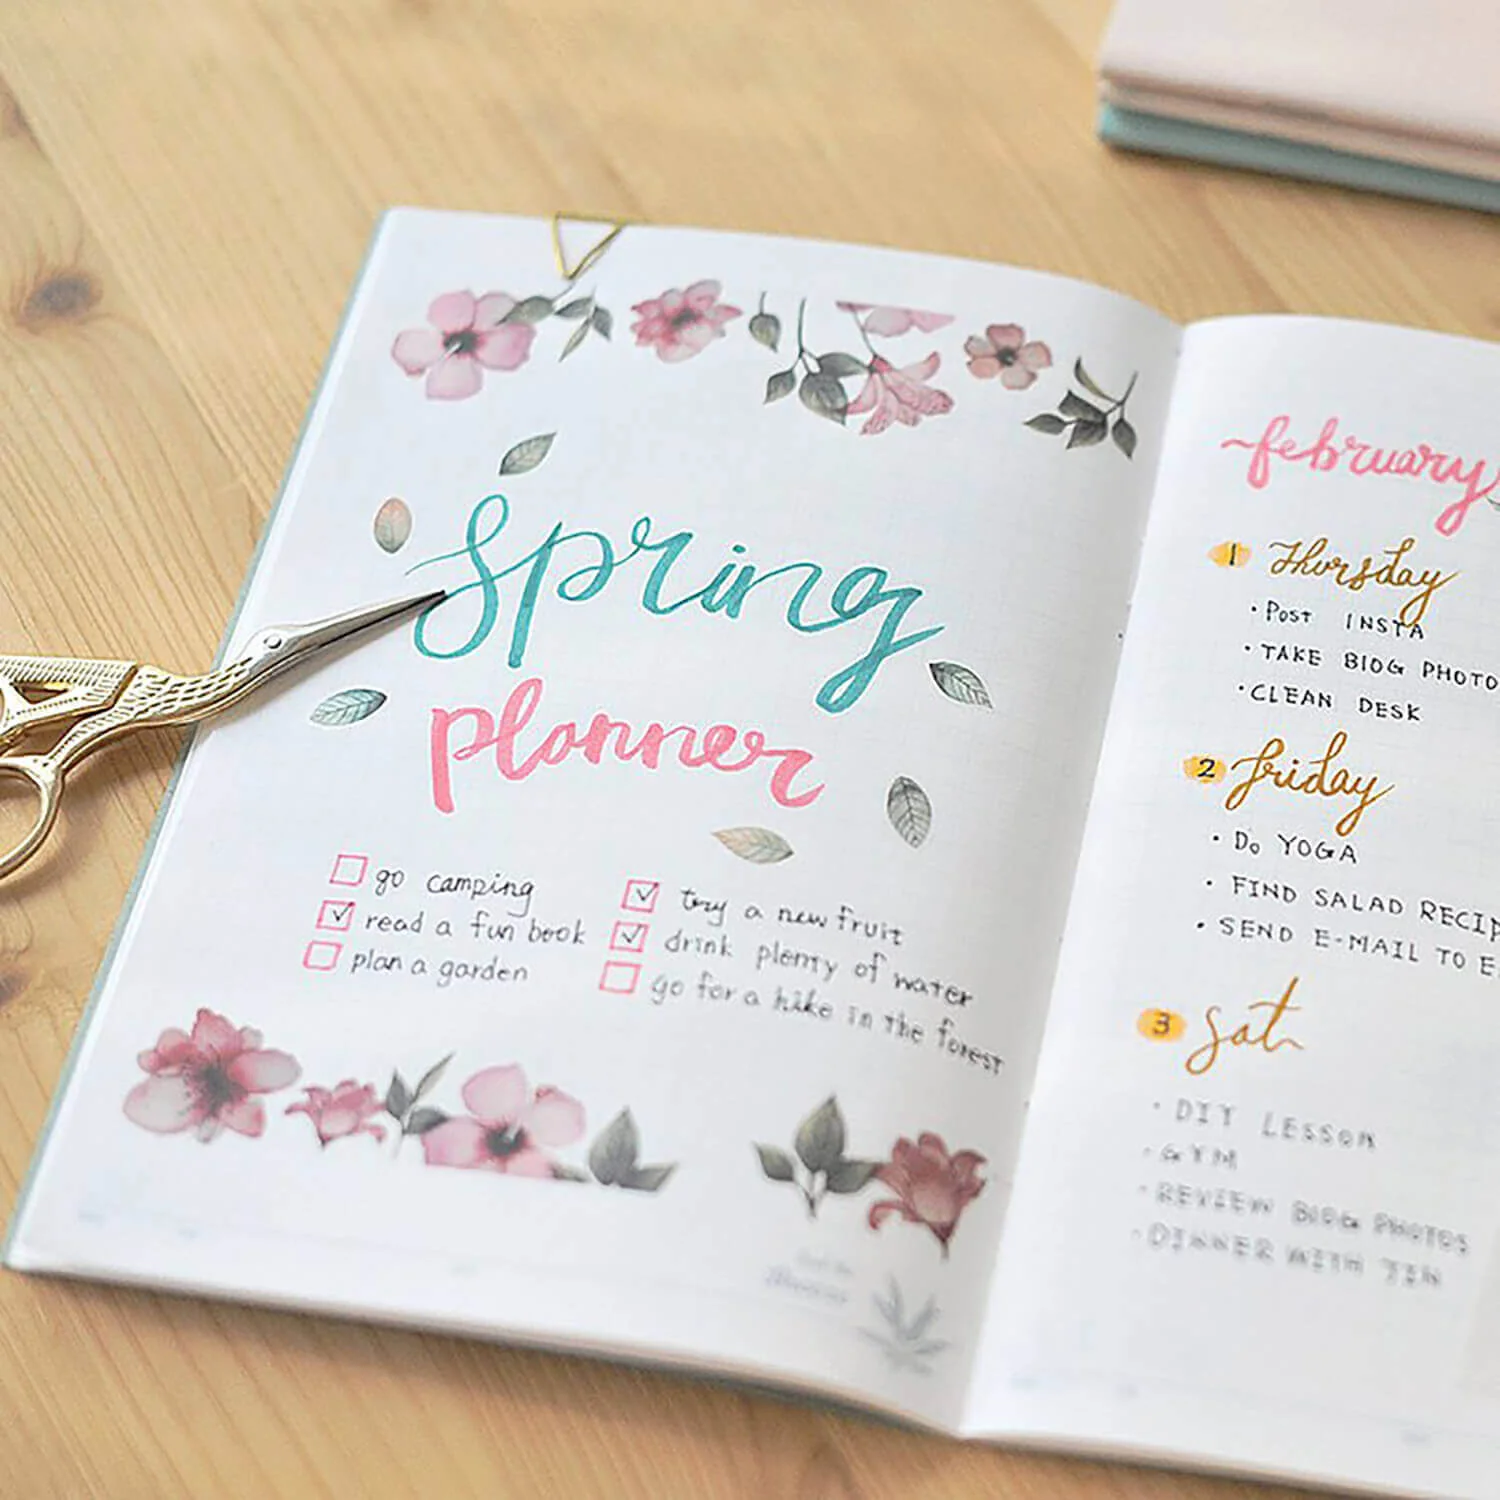 Spring
planner
go camping
read a fun book
plan a garden
try a new fruit
drink plenty of water
go for a hike in the forest
february
1 Thursday
• Post INSTA
• TAKE BLOG PHOTO
• CLEAN DESK
2 friday
• Do YOGA
• FIND SALAD RECIP
• SEND E-MAIL TO E
3 Sat
• DIY LESSON
• GYM
• REVIEW BLOG PHOTOS
• DINNER WITH TIN